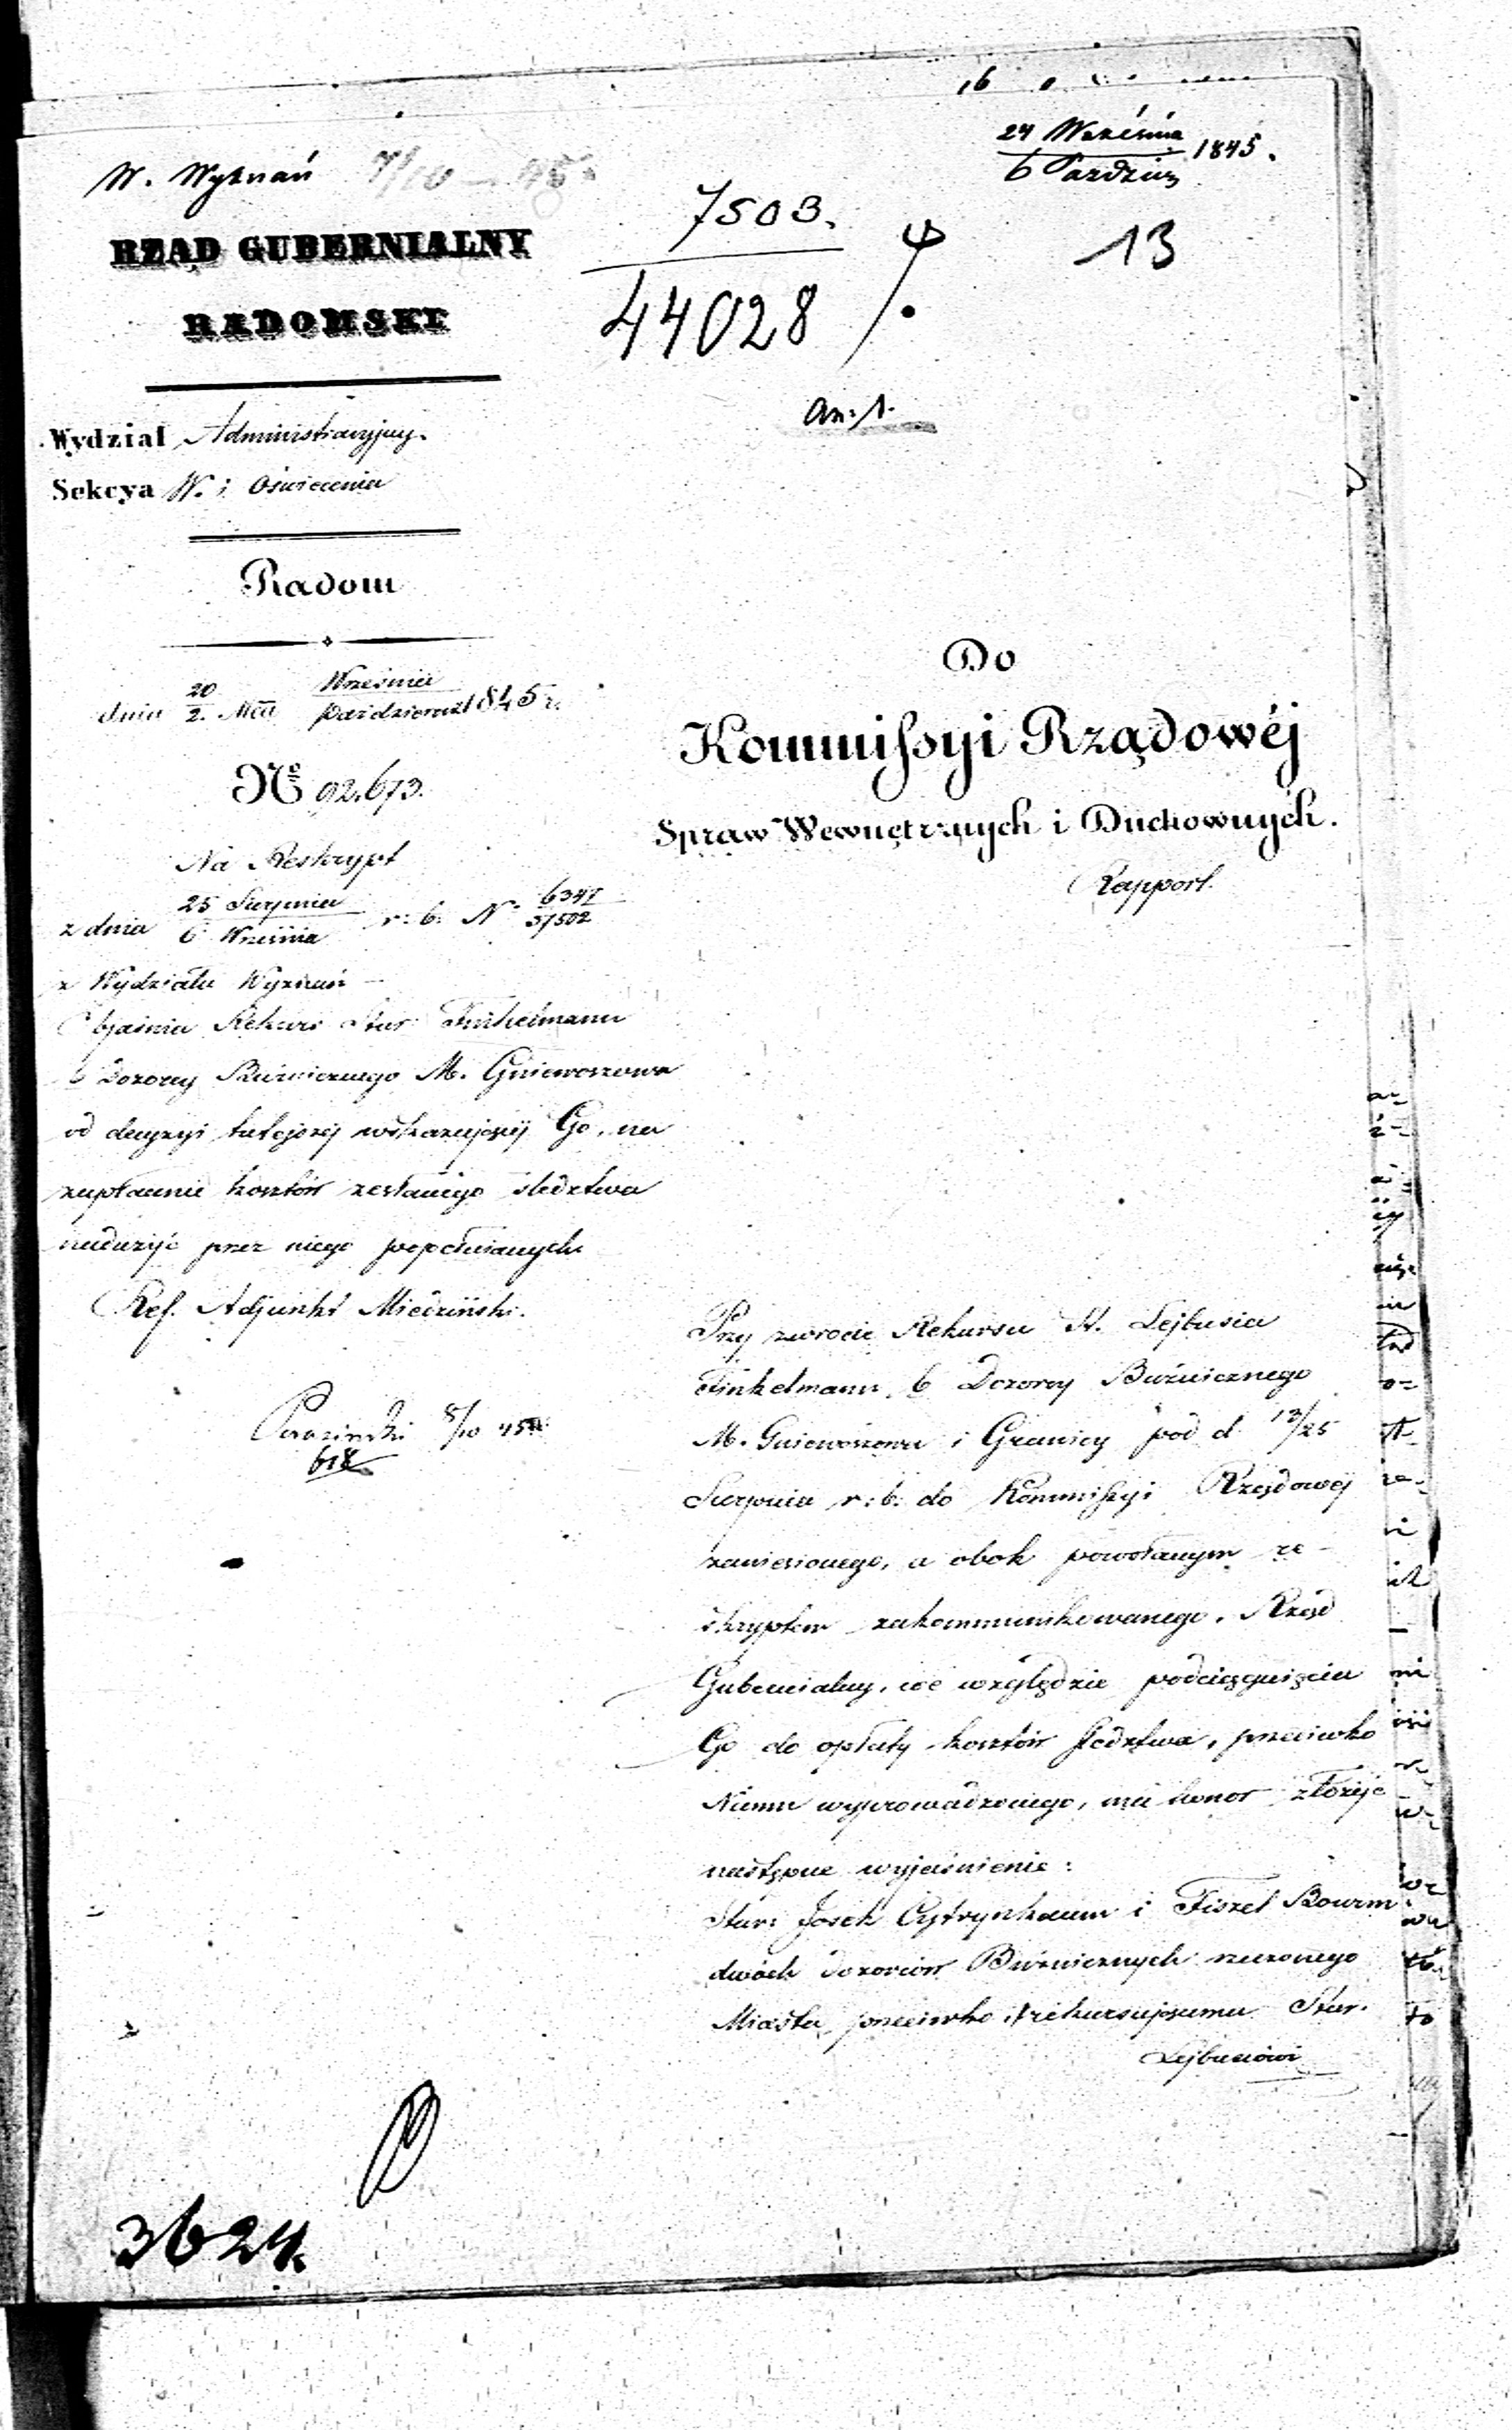 24 Września
6 Paździer 1845.
W. Wyznań 7/10 45
7503.
44028
13
RZĄD GUBERNIALNY
RADOMSKI
an: 1.
Wydział Administracyjny.
Sekcya W. i Oświecenia
Radom
dnia 20/2. Września/Października 1845 r.
Nº 92.673.
Na Reskrypt
z dnia 25 Sierpnia/6 Września r: b: N. 6347/37502
z Wydziału Wyznań
Objaśnia Rekurs Star: Finkelmana
b Dozorcy Bużnicznego M. Gniewoszowa
od decyzyi tutejszej wskazującej Go, na
zapłacenie kosztów zesłanego śledztwa
nadużyć przez niego popełnianych
Ref. Adjunkt Miedziński.
8/10 45
618
Do
Kommissyi Rządowéj
Spraw Wewnętrznych i Duchownych.
Rapport.
Przy zwrocie Rekursu St. Lejbusia
Finkelmann, b Dozorcy Bużnicznego
M. Gniewoszowa i Granicy pod d. 13/25
Sierpnia r: b: do Kommissyi Rządowej
zaniesionego, a obok powołanym re-
skryptem zakommunikowanego, Rząd
Gubernialny, we względzie podciągnięcia
Go do opłaty kosztów śledztwa, przeciwko
Niemu wyprowadzonego, ma honor złożyć
następne wyjaśnienie:
Star: Josek Cytrynbaum i Fiszel
dwóch Dozorców Bużnicznych rzeczonego
Miasta, przeciwko rekursującemu Star.
Lejbusiowi
3624.